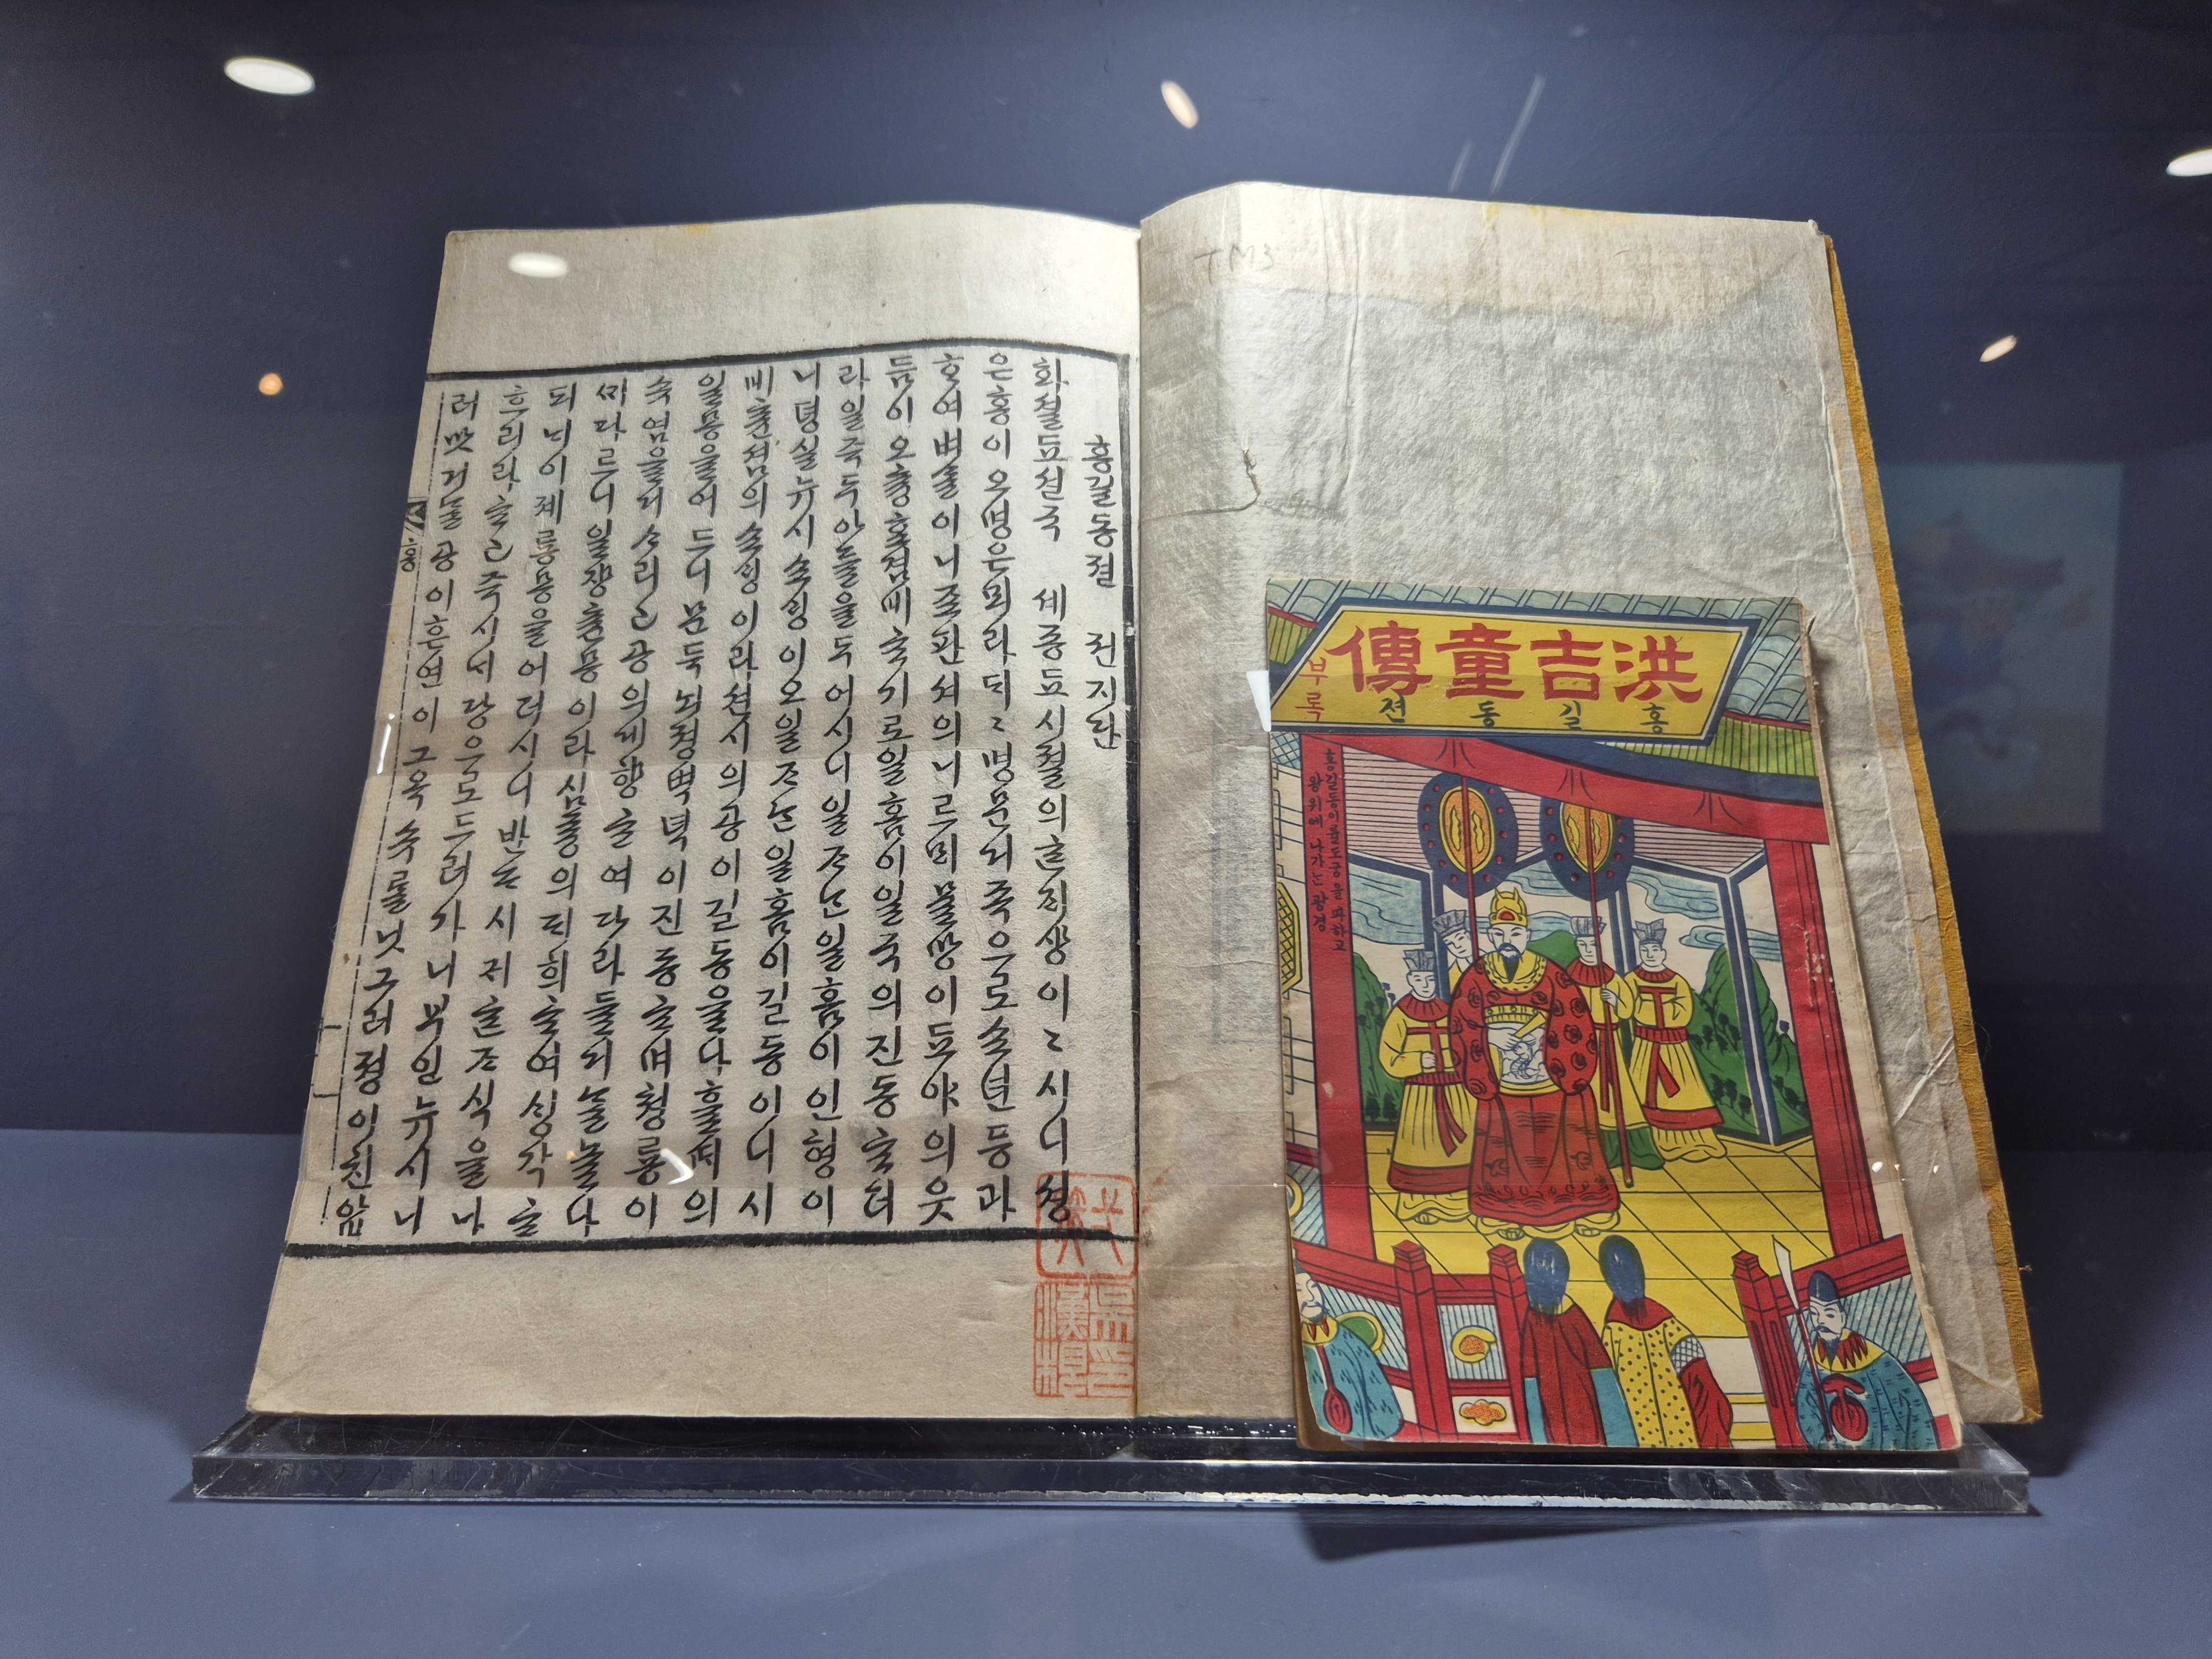 홍길동젼 권지단
화셜됴션국 셰종됴시졀의ᄒᆞᆫᄌᆡ상이〻시니셩
은홍이오명은뫼라ᄃᆡ〻명문거족으로쇼년등과
ᄒᆞ여벼ᄉᆞᆯ이니조판셔의니르ᄆᆡ물망이됴야의웃
듬이오츙효겸비ᄒᆞ기로일홈이일국의진동ᄒᆞ더
라일즉두아들을두어시니일ᄌᆞᄂᆞᆫ일홈이인형이
니뎡실뉴시쇼ᄉᆡᆼ이오일ᄌᆞᄂᆞᆫ일홈이길동이니시
비츈셤의쇼ᄉᆡᆼ이라션시의공이길동을나흘ᄯᆡ의
일몽을어드니문득뇌졍벽녁이진동ᄒᆞ며쳥룡이
슈염을거ᄉᆞ리고공의게향ᄒᆞ여다라들거ᄂᆞᆯ놀나
ᄭᆡ다르니일쟝츈몽이라심즁의ᄃᆡ희ᄒᆞ여ᄉᆡᆼ각ᄒᆞ
되ᄂᆡ이졔룡몽을어더시니반ᄃᆞ시귀ᄒᆞᆫᄌᆞ식을나
흐리라ᄒᆞ고즉시ᄂᆡ당으로드러가니부인뉴시니
러맛거ᄂᆞᆯ공이흔연이그옥슈를닛그러졍이친압
홍
TM3
洪吉童傳
홍길동젼
부록
홍길동이률도궁을파하고
왕위에 나가는 광경
吳印漢根